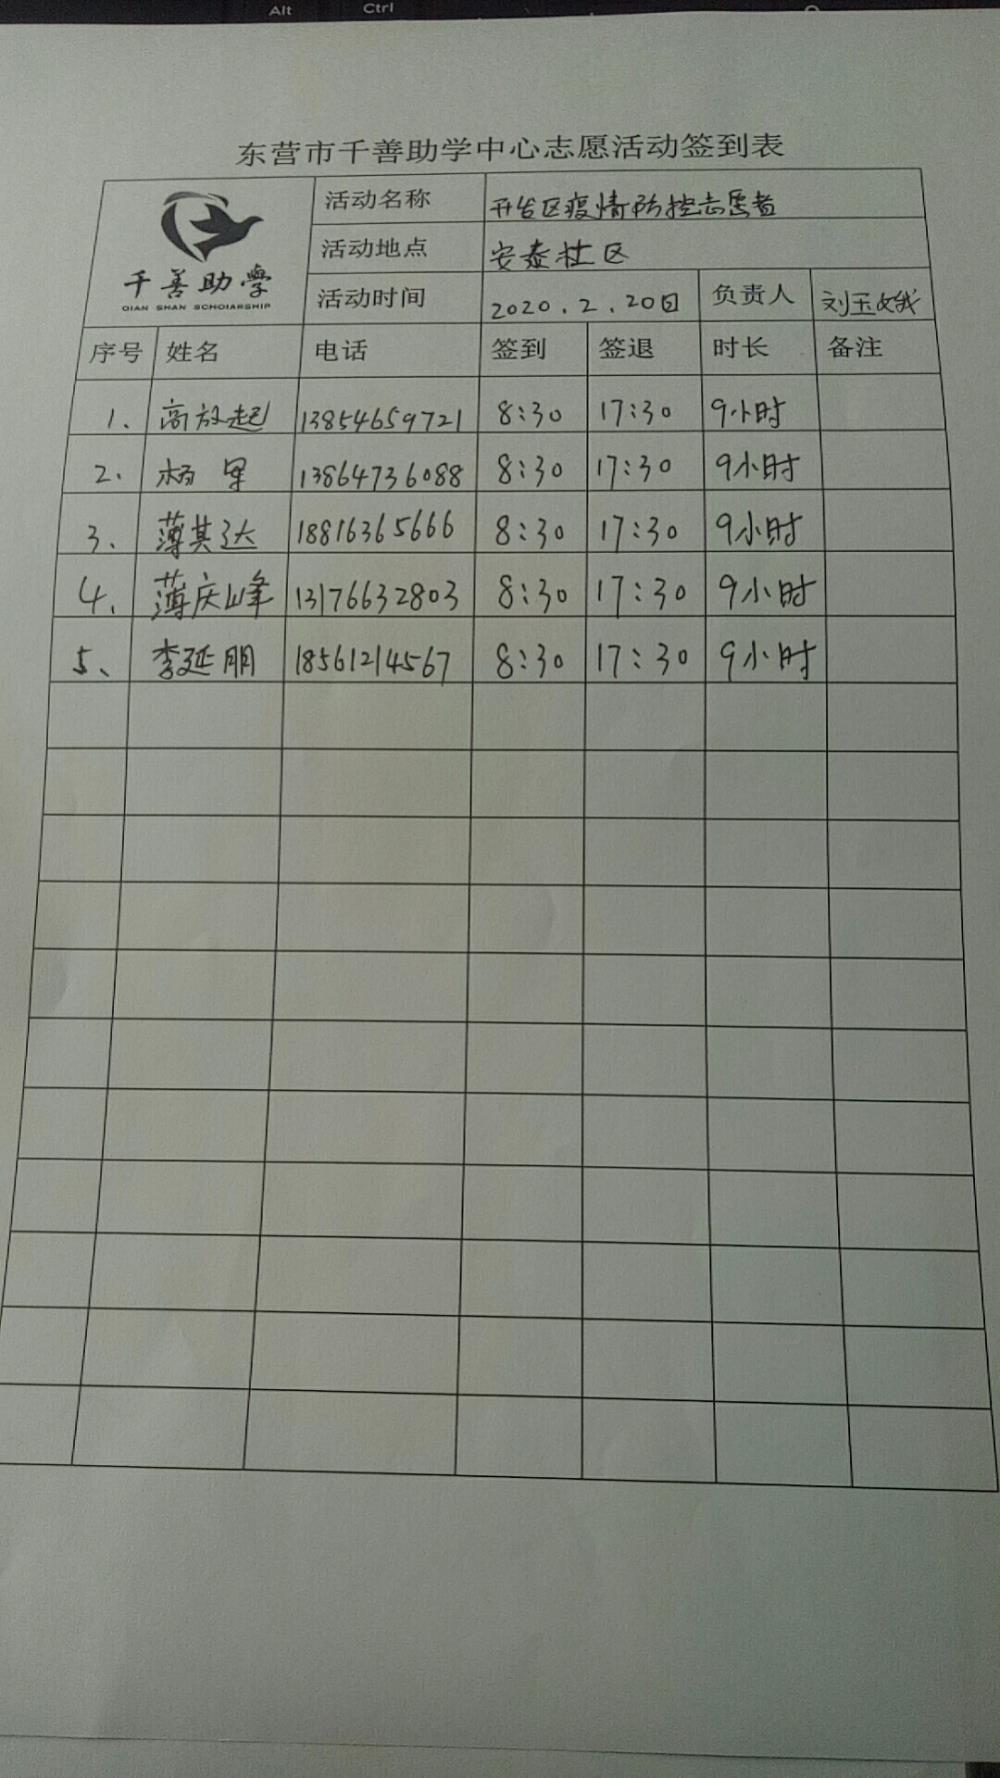 Alt Ctrl
东营市千善助学中心志愿活动签到表
千善助學
QIAN SHAN SCHOIARSHIP
活动名称 开发区疫情防控志愿者
活动地点 安泰社区
活动时间 2020.2.20日 负责人 刘玉娥
序号 姓名 电话 签到 签退 时长 备注
1、 高放起 13854659721 8:30 17:30 9小时
2、 杨军 13864736088 8:30 17:30 9小时
3、 薄其达 18816365666 8:30 17:30 9小时
4、 薄庆峰 13176632803 8:30 17:30 9小时
5、 李延朋 18561214567 8:30 17:30 9小时